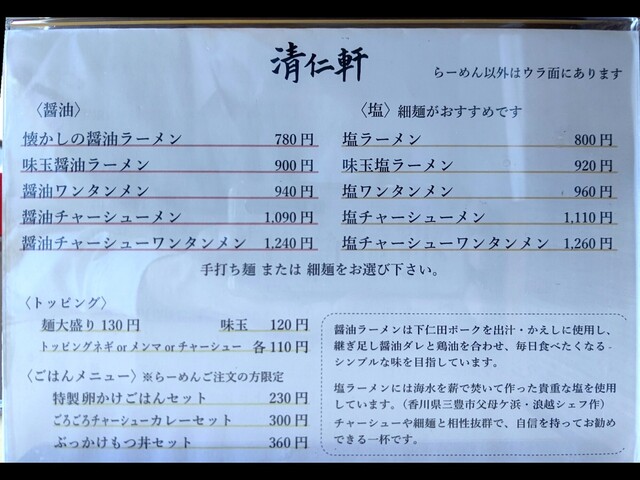 清仁軒
らーめん以外はウラ面にあります
〈醤油〉
懐かしの醤油ラーメン 780円
味玉醤油ラーメン 900円
醤油ワンタンメン 940円
醤油チャーシューメン 1,090円
醤油チャーシューワンタンメン 1,240円
〈塩〉細麺がおすすめです
塩ラーメン 800円
味玉塩ラーメン 920円
塩ワンタンメン 960円
塩チャーシューメン 1,110円
塩チャーシューワンタンメン 1,260円
手打ち麺 または 細麺をお選び下さい。
〈トッピング〉
麺大盛り 130円 味玉 120円
トッピングネギ or メンマ or チャーシュー 各110円
〈ごはんメニュー〉※らーめんご注文の方限定
特製 卵かけごはんセット 230円
ごろごろチャーシューカレーセット 300円
ぶっかけもつ丼セット 360円
醤油ラーメンは下仁田ポークを出汁・かえしに使用し、
継ぎ足し醤油ダレと鶏油を合わせ、毎日食べたくなる
シンプルな味を目指しています。
塩ラーメンには海水を薪で焚いて作った貴重な塩を使用
しています。（香川県三豊市父母ケ浜・浪越シェフ作）
チャーシューや細麺と相性抜群で、自信を持ってお勧め
できる一杯です。